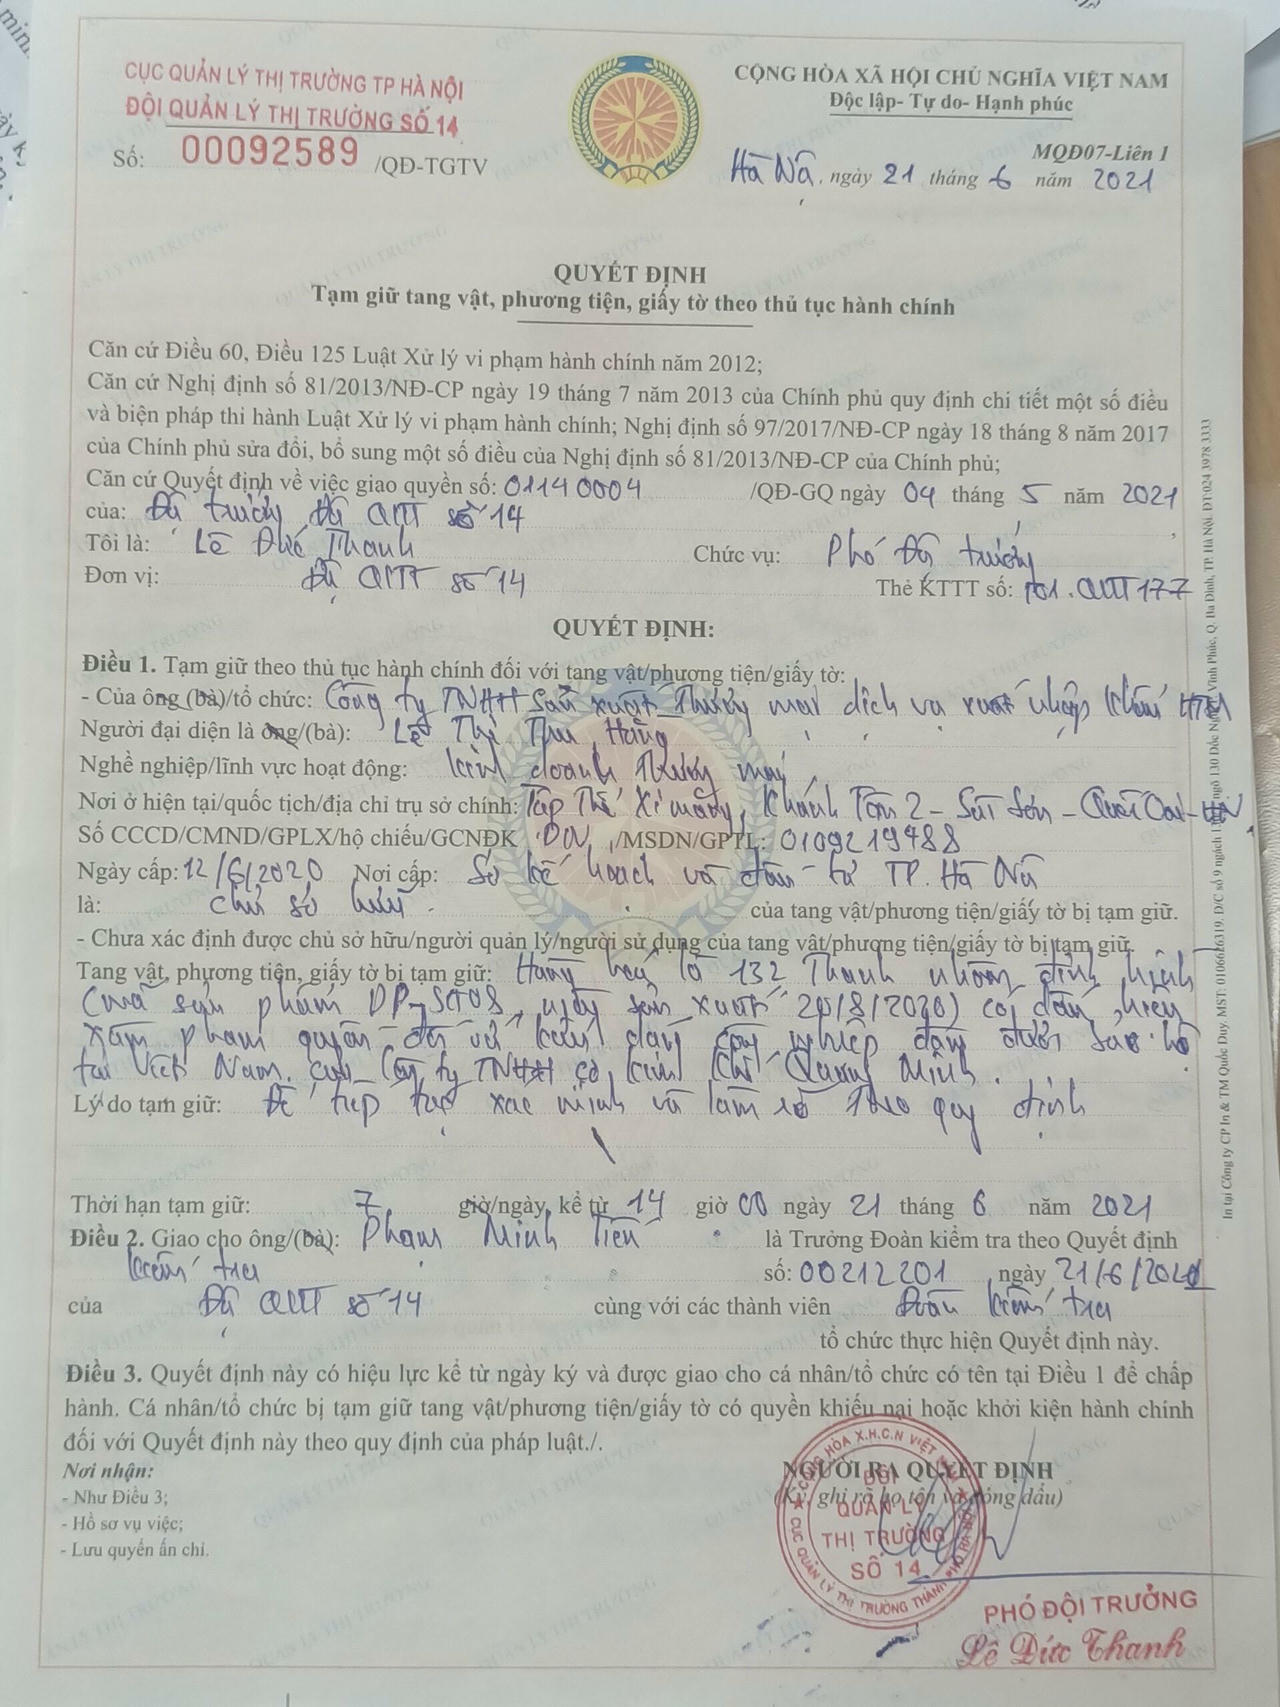 CỤC QUẢN LÝ THỊ TRƯỜNG TP HÀ NỘI
ĐỘI QUẢN LÝ THỊ TRƯỜNG SỐ 14
Số: 00092589 /QĐ-TGTV
CỘNG HÒA XÃ HỘI CHỦ NGHĨA VIỆT NAM
Độc lập- Tự do- Hạnh phúc
MQĐ07-Liên 1
Hà Nội, ngày 21 tháng 6 năm 2021
QUYẾT ĐỊNH
Tạm giữ tang vật, phương tiện, giấy tờ theo thủ tục hành chính
Căn cứ Điều 60, Điều 125 Luật Xử lý vi phạm hành chính năm 2012;
Căn cứ Nghị định số 81/2013/NĐ-CP ngày 19 tháng 7 năm 2013 của Chính phủ quy định chi tiết một số điều
và biện pháp thi hành Luật Xử lý vi phạm hành chính; Nghị định số 97/2017/NĐ-CP ngày 18 tháng 8 năm 2017
của Chính phủ sửa đổi, bổ sung một số điều của Nghị định số 81/2013/NĐ-CP của Chính phủ;
Căn cứ Quyết định về việc giao quyền số: 01140004 /QĐ-GQ ngày 04 tháng 5 năm 2021
của: Đội trưởng Đội QLTT số 14
Tôi là: Lê Đức Thanh Chức vụ: Phó Đội trưởng
Đơn vị: Đội QLTT số 14 Thẻ KTTT số: 101.QLTT177
QUYẾT ĐỊNH:
Điều 1. Tạm giữ theo thủ tục hành chính đối với tang vật/phương tiện/giấy tờ:
- Của ông (bà)/tổ chức: Công ty TNHH Sản xuất Thương mại dịch vụ xuất nhập khẩu HTH
Người đại diện là ông/(bà): Lê Thị Thu Hằng
Nghề nghiệp/lĩnh vực hoạt động: kinh doanh thương mại
Nơi ở hiện tại/quốc tịch/địa chỉ trụ sở chính: Tập Thể Xi măng, Khánh Tân 2 - Sài Sơn - Quốc Oai - HN
Số CCCD/CMND/GPLX/hộ chiếu/GCNĐK DN /MSDN/GPTL: 0109219488
Ngày cấp: 12/6/2020 Nơi cấp: Sở kế hoạch và đầu tư TP. Hà Nội
là: chủ sở hữu của tang vật/phương tiện/giấy tờ bị tạm giữ.
- Chưa xác định được chủ sở hữu/người quản lý/người sử dụng của tang vật/phương tiện/giấy tờ bị tạm giữ.
Tang vật, phương tiện, giấy tờ bị tạm giữ: Hàng hoá là 132 Thanh nhôm định hình
(mã sản phẩm DP-SCT08, ngày sản xuất 20/8/2020) có dấu hiệu
xâm phạm quyền đối với kiểu dáng công nghiệp đang được bảo hộ
tại Việt Nam của Công ty TNHH cơ kim khí Quang Minh.
Lý do tạm giữ: Để tiếp tục xác minh và làm rõ theo quy định
Thời hạn tạm giữ: 7 giờ/ngày, kể từ 14 giờ 00 ngày 21 tháng 6 năm 2021
Điều 2. Giao cho ông/(bà): Phạm Minh Tiến là Trưởng Đoàn kiểm tra theo Quyết định
kiểm tra số: 00212201 ngày 21/6/2021
của Đội QLTT số 14 cùng với các thành viên Đoàn kiểm tra
tổ chức thực hiện Quyết định này.
Điều 3. Quyết định này có hiệu lực kể từ ngày ký và được giao cho cá nhân/tổ chức có tên tại Điều 1 để chấp
hành. Cá nhân/tổ chức bị tạm giữ tang vật/phương tiện/giấy tờ có quyền khiếu nại hoặc khởi kiện hành chính
đối với Quyết định này theo quy định của pháp luật./.
Nơi nhận:
- Như Điều 3;
- Hồ sơ vụ việc;
- Lưu quyển ấn chỉ.
NGƯỜI RA QUYẾT ĐỊNH
(Ký, ghi rõ họ tên và đóng dấu)
ĐỘI
QUẢN LÝ
THỊ TRƯỜNG
SỐ 14
PHÓ ĐỘI TRƯỞNG
Lê Đức Thanh